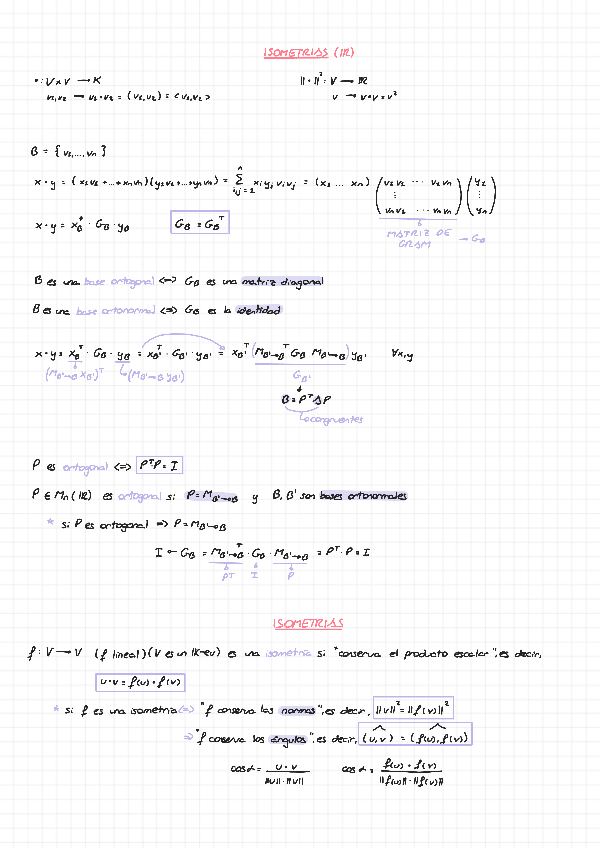 ISOMETRIAS (IR)
• : V x V → K    || · ||² : V → IR
v₁, v₂ → v₁ · v₂ = (v₁, v₂) = <v₁, v₂>    v → v · v = v²
B = { v₁, ..., vₙ }
x · y = (x₁v₁ + ... + xₙvₙ)(y₁v₁ + ... + yₙvₙ) = Σ_{i,j=1}^{n} xᵢ yⱼ vᵢ vⱼ = (x₁ ... xₙ) (v₁v₁ ... v₁vₙ ⋮ vₙv₁ ... vₙvₙ) (y₁ ⋮ yₙ)
x · y = x_B^T · G_B · y_B    G_B = G_B^T    MATRIZ DE GRAM → G_B
B es una base ortogonal <=> G_B es una matriz diagonal
B es una base ortonormal <=> G_B es la identidad
x · y = x_B^T · G_B · y_B = x_B'^T · G_B' · y_B' = x_B'^T (M_B'→B^T G_B M_B'→B) y_B'    ∀x,y
(M_B'→B x_B')^T    (M_B'→B y_B')    G_B'
B = P^T A P
congruentes
P es ortogonal <=> P^T P = I
P ∈ Mₙ(IR) es ortogonal si P = M_B'→B y B, B' son bases ortonormales
* si P es ortogonal => P = M_B'→B
I ← G_B = M_B'→B^T · G_B · M_B'→B = P^T · P = I
P^T    I    P
ISOMETRIAS
f : V → V (f lineal) (V es un IK-ev) es una isometría si "conserva el producto escalar", es decir,
u · v = f(u) · f(v)
* si f es una isometría <=> "f conserva las normas", es decir, ||v||² = ||f(v)||²
=> "f conserva los ángulos", es decir, (u, v) = (f(u), f(v))
cos α = u · v / ||u|| · ||v||    cos α = f(u) · f(v) / ||f(u)|| · ||f(v)||